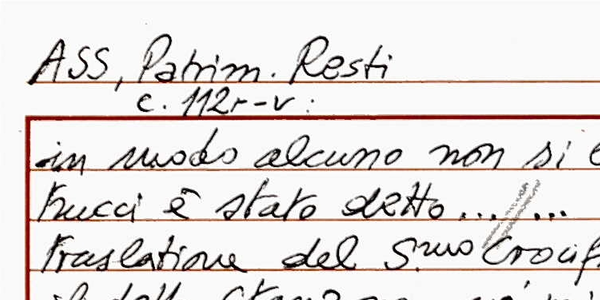 ASS, Patrim. Resti
c. 112r-v:
in modo alcuno non si
trucci è stato detto ... ...
traslatione del S.mo Crocif